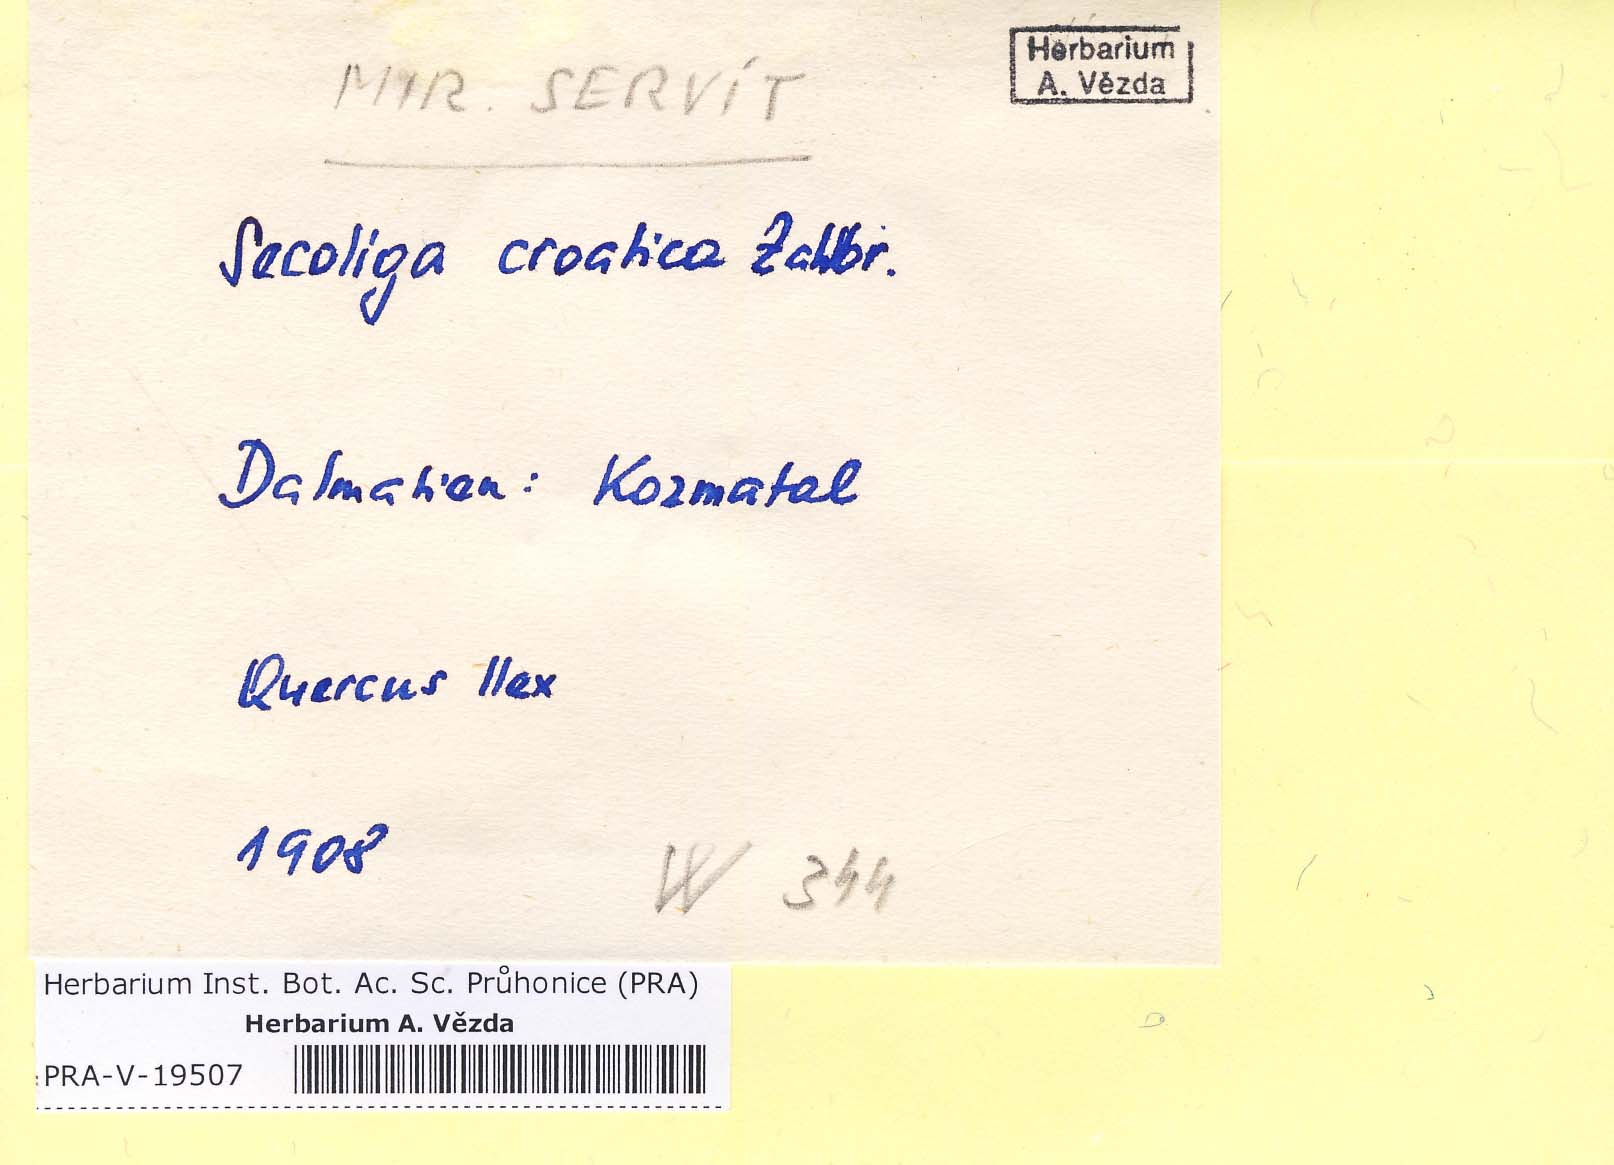 Herbarium
A. Vězda
MIR. SERVÍT
Secoliga croatica Zahlbr.
Dalmatien: Kozmatal
Quercus Ilex
1908
W 344
Herbarium Inst. Bot. Ac. Sc. Průhonice (PRA)
Herbarium A. Vězda
PRA-V-19507